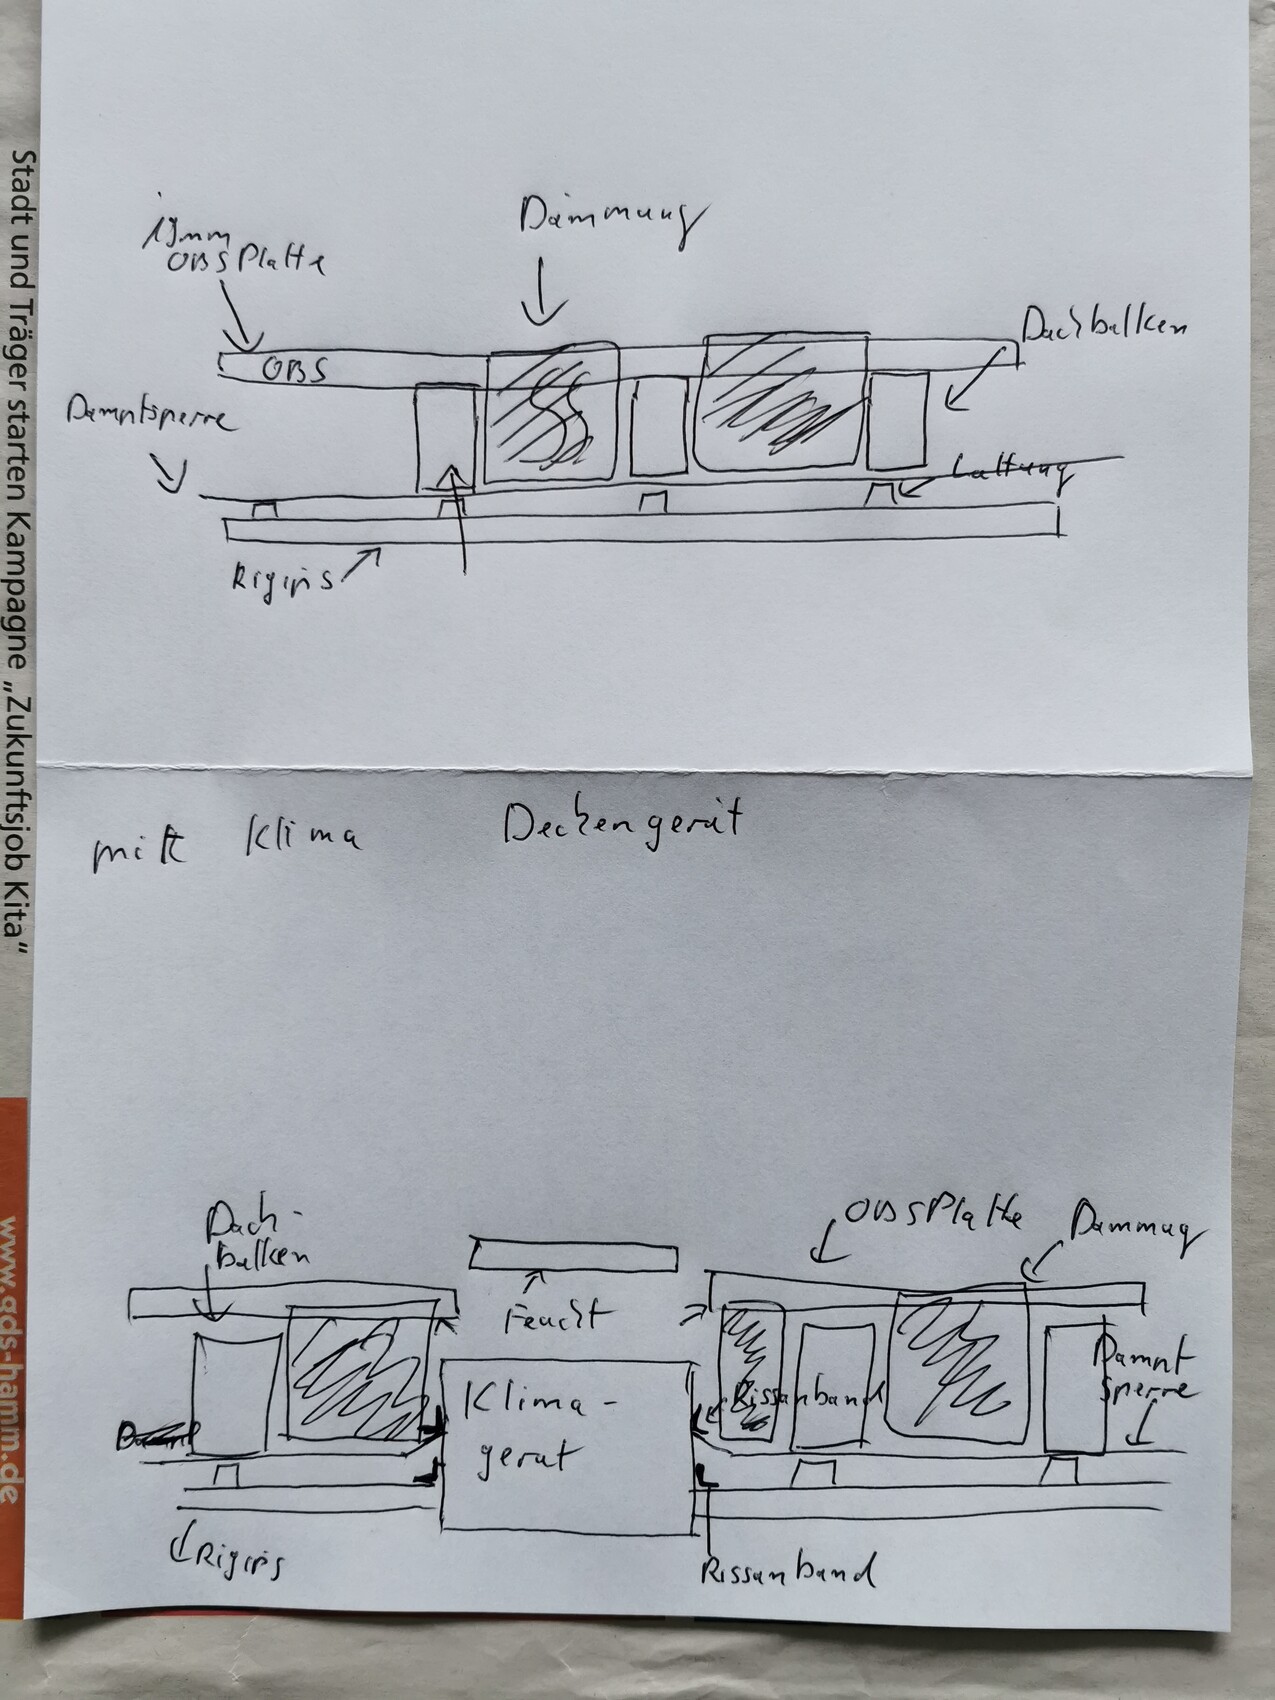 Stadt und Träger starten Kampagne „Zukunftsjob Kita“
www.gds-hamm.de
19mm
OBS Platte
Dämmung
Dachbalken
OBS
Dampfsperre
Lattung
Rigips
mit Klima Deckengerät
Dach-
balken
OBS Platte
Dämmug
Feucht
Klima-
gerät
Rissanband
Dampf
sperre
Rigips
Rissanband